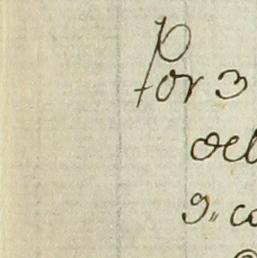 Por 3
del
9,, co